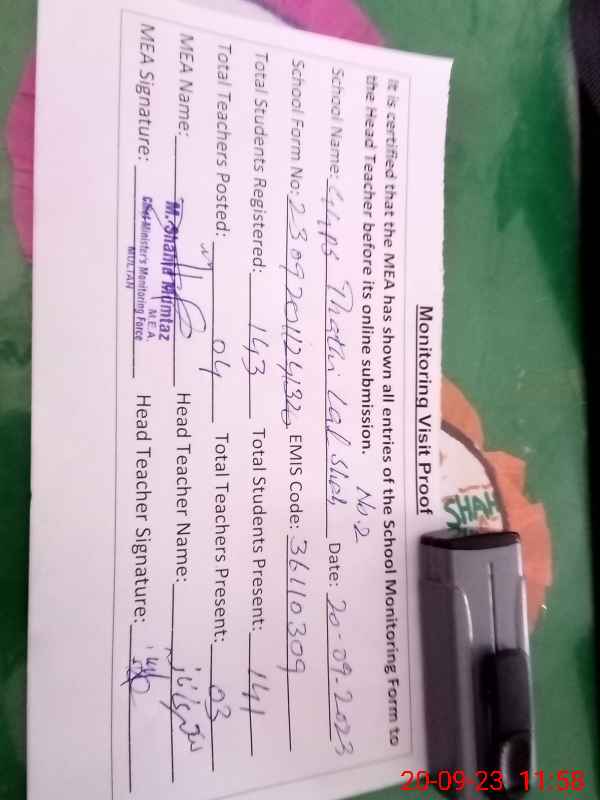 Monitoring Visit Proof
It is certified that the MEA has shown all entries of the School Monitoring Form to
the Head Teacher before its online submission.
No.2
School Name: Thathi Lal Shah Date: 20-09-2023
School Form No: EMIS Code: 36110309
Total Students Registered: 143 Total Students Present: 141
Total Teachers Posted: 04 Total Teachers Present: 03
MEA Name: Head Teacher Name:
M. Shahid Mumtaz
M.E.A.
MEA Signature: Head Teacher Signature:
Chief Minister's Monitoring Force
MULTAN
SHAH
20-09-23 11:58